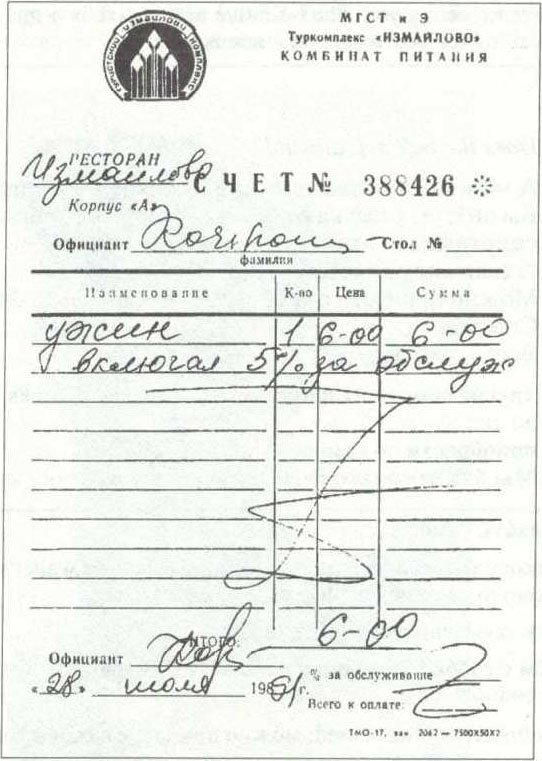 ТУРИСТСКИЙ ИЗМАЙЛОВО КОМПЛЕКС
МГСТ и Э
Туркомплекс «ИЗМАЙЛОВО»
КОМБИНАТ ПИТАНИЯ
РЕСТОРАН
Измайлово
СЧЕТ № 388426
Корпус «А»
Официант Стол №
фамилия
Наименование К-во Цена Сумма
ужин 1 6-00 6-00
включая 5% за обслуж
ИТОГО: 6-00
Официант
% за обслуживание
«28» июля 19 г.
Всего к оплате:
ТМО-17, зак. 2062 — 7500X50X2